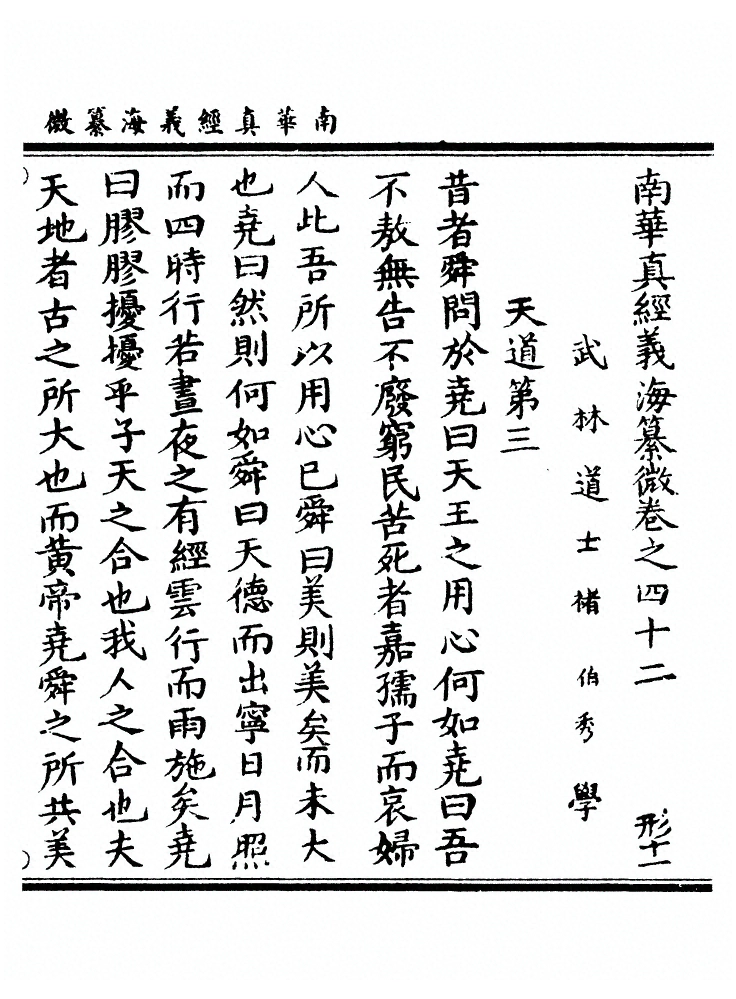 南華真經義海纂微
南華真經義海纂微卷之四十二 形十一
武林道士褚伯秀學
天道第三
昔者舜問於堯曰天王之用心何如堯曰吾
不敖無告不廢窮民苦死者嘉孺子而哀婦
人此吾所以用心已舜曰美則美矣而未大
也堯曰然則何如舜曰天德而出寧日月照
而四時行若晝夜之有經雲行而雨施矣堯
曰膠膠擾擾乎子天之合也我人之合也夫
天地者古之所大也而黃帝堯舜之所共美